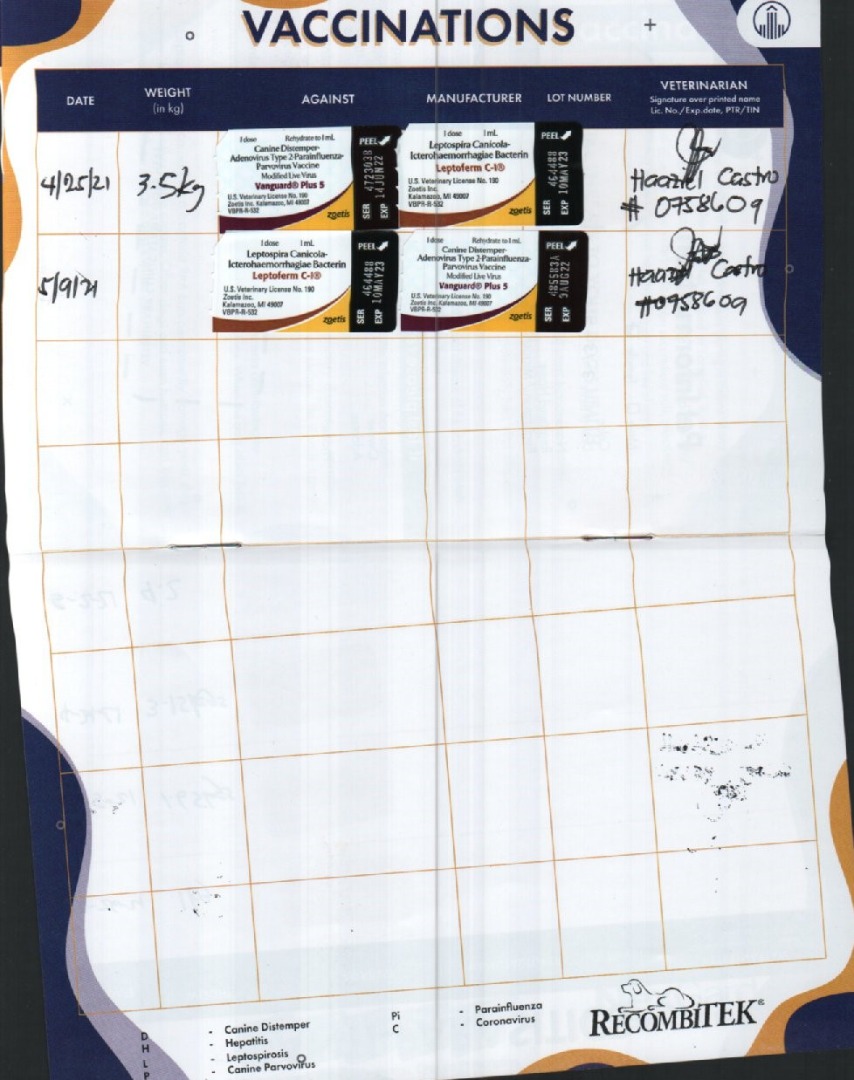 VACCINATIONS
DATE
WEIGHT
(in kg)
AGAINST
MANUFACTURER
LOT NUMBER
VETERINARIAN
Signature over printed name
Lic. No./Exp.date, PTR/TIN
4/25/21
3.5kg
1 dose Rehydrate to 1 mL
Canine Distemper-
Adenovirus Type 2-Parainfluenza-
Parvovirus Vaccine
Modified Live Virus
Vanguard® Plus 5
U.S. Veterinary License No. 190
Zoetis Inc.
Kalamazoo, MI 49007
VBPR-R-532
zoetis
PEEL
SER 472303B
EXP 14JUN22
1 dose 1 mL
Leptospira Canicola-
Icterohaemorrhagiae Bacterin
Leptoferm C-I®
U.S. Veterinary License No. 190
Zoetis Inc.
Kalamazoo, MI 49007
VBPR-R-532
zoetis
PEEL
SER 464488
EXP 10MAY23
Haaziel Castro
# 0758609
5/9/21
1 dose 1 mL
Leptospira Canicola-
Icterohaemorrhagiae Bacterin
Leptoferm C-I®
U.S. Veterinary License No. 190
Zoetis Inc.
Kalamazoo, MI 49007
VBPR-R-532
zoetis
PEEL
SER 464488
EXP 10MAY23
1 dose Rehydrate to 1 mL
Canine Distemper-
Adenovirus Type 2-Parainfluenza-
Parvovirus Vaccine
Modified Live Virus
Vanguard® Plus 5
U.S. Veterinary License No. 190
Zoetis Inc.
Kalamazoo, MI 49007
VBPR-R-532
zoetis
PEEL
SER 485583A
EXP 9AUG22
Haaziel Castro
#0758609
D - Canine Distemper
H - Hepatitis
L - Leptospirosis
P - Canine Parvovirus
Pi - Parainfluenza
C - Coronavirus
RECOMBITEK®